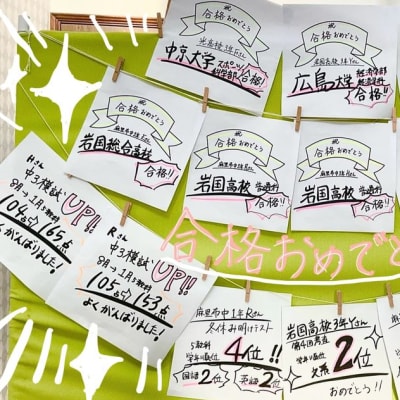 祝
合格おめでとう
中京大学 スポーツ
科学部 合格!
祝
合格おめでとう
広島大学 経済学部
経済学科
合格!!
祝
合格おめでとう
岩国総合高校
合格!!
祝
合格おめでとう
岩国高校 普通科
合格!!
祝
合格おめでとう
岩国高校 普通科
合格!!
合格おめでと
Hさん
中3模試 UP!!
8月→1月
104点→165点
よくがんばりました!
Rさん
中3模試 UP!!
8月→1月
105点→153点
よくがんばりました!
麻里布中1年Rさん
冬休み明けテスト
5教科
学年順位 4位!!
国語2位 英語2位
岩国高校3年Yさん
学年順位 2位
文系
おめでとう!!